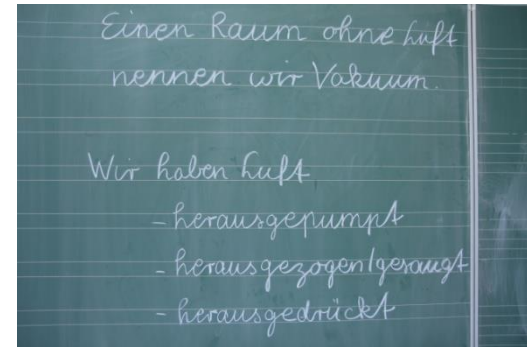 Einen Raum ohne Luft
nennen wir Vakuum.
Wir haben Luft
- herausgepumpt
- herausgezogen/gesaugt
- herausgedrückt